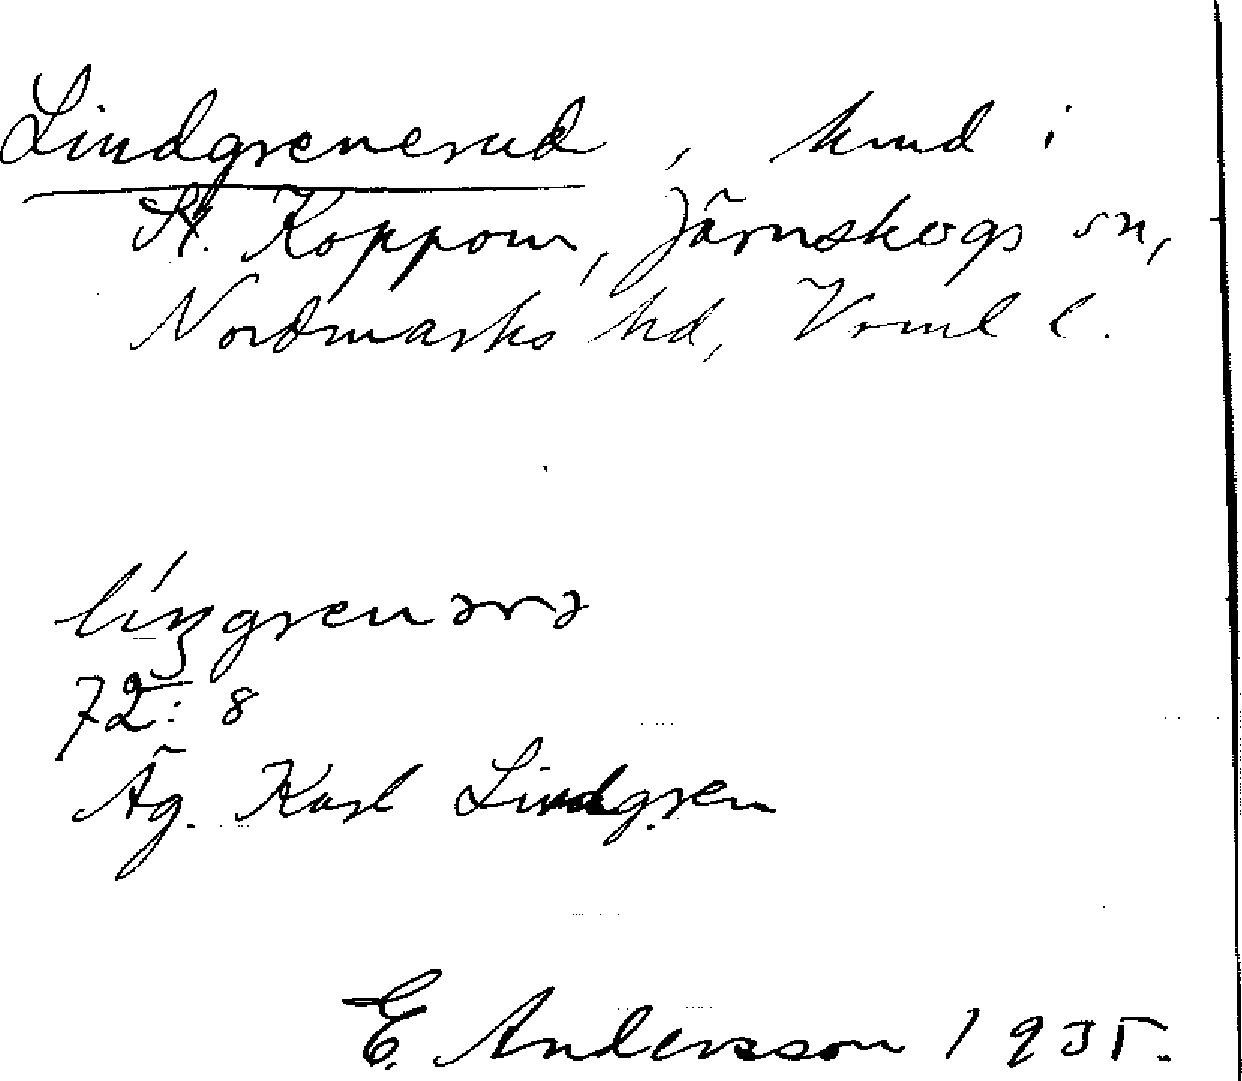 Lindgrenerud, hmd i
St. Koppom, Järnskogs sn,
Nordmarks hd, Vrml l.
72: 8
Äg. Karl Lindgren
E. Andersson 1935.